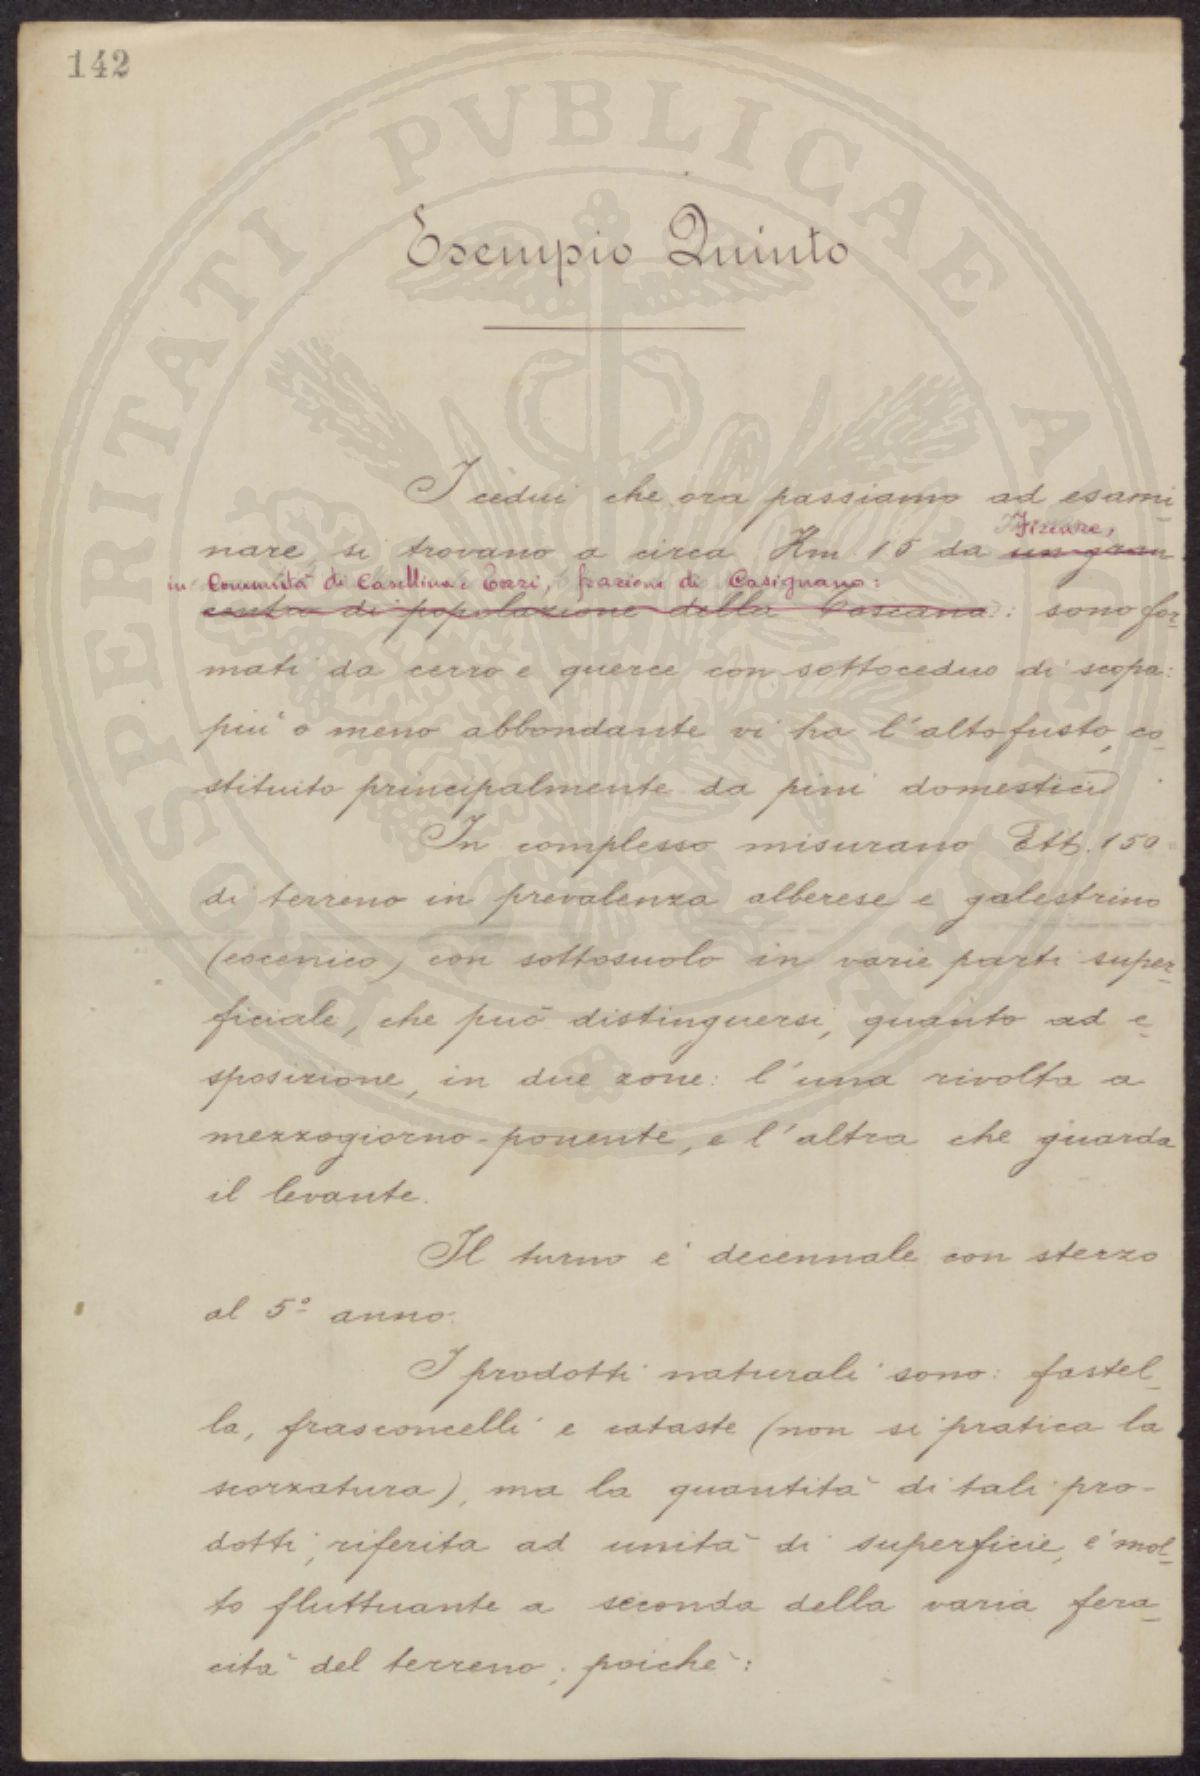 142
PROSPERITATI PVBLICAE AVGENDAE
Esempio Quinto
I cedui che ora passiamo ad esami-
Firenze,
nare si trovano a circa Km. 15 da un gran
in Comunità di Casellina e Torri, frazione di Casignano:
centro di popolazione della Toscana: sono for-
mati da cerro e querce con sottoceduo di scopa:
più o meno abbondante vi ha l'altofusto, co-
stituito principalmente da pini domestici
In complesso misurano Ett. 150
di terreno in prevalenza alberese e galestrino
(eocenico) con sottosuolo in varie parti super-
ficiale, che può distinguersi, quanto ad e-
sposizione, in due zone: l'una rivolta a
mezzogiorno-ponente, e l'altra che guarda
il levante.
Il turno è decennale con sterzo
al 5º anno.
I prodotti naturali sono: fastel-
la, frasconcelli e cataste (non si pratica la
scorzatura), ma la quantità di tali pro-
dotti, riferita ad unità di superficie, è mol-
to fluttuante a seconda della varia fera-
cità del terreno; poichè: